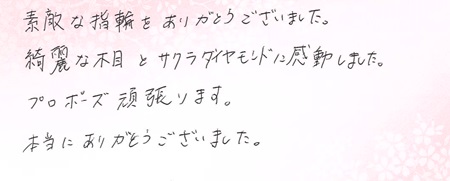 素敵な指輪をありがとうございました。
綺麗な木目とサクラダイヤモンドに感動しました。
プロポーズ頑張ります。
本当にありがとうございました。